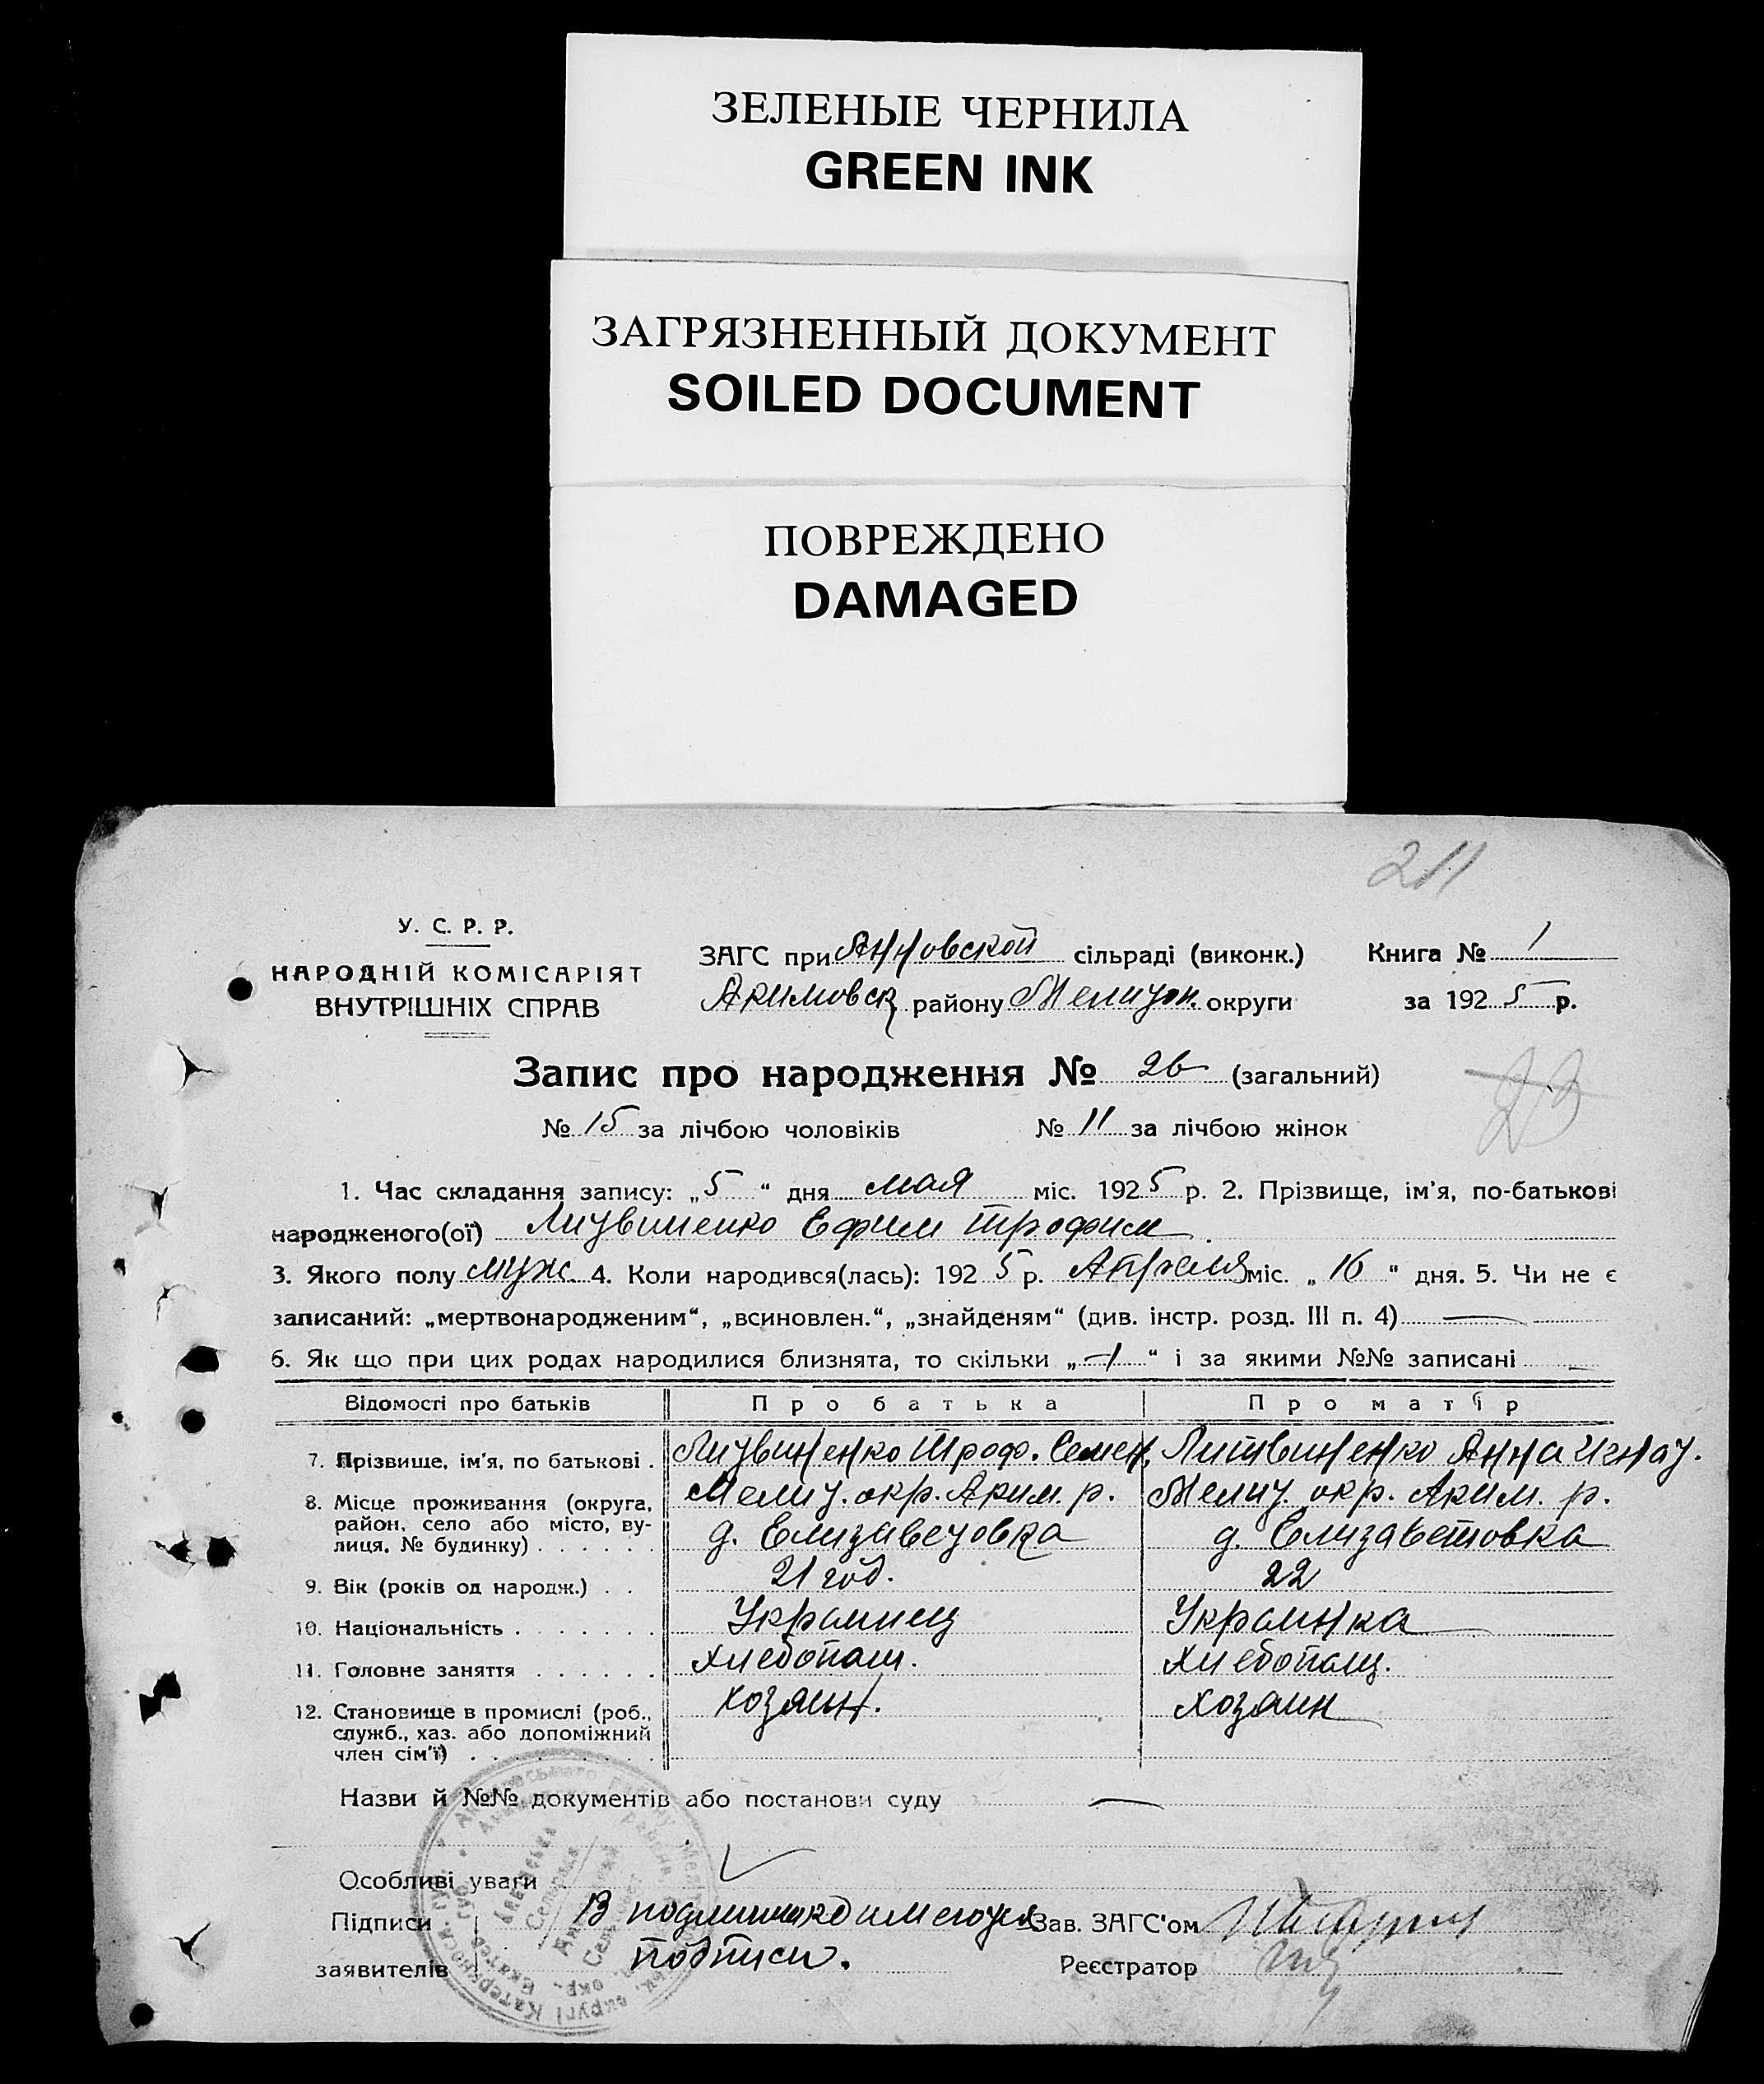 ЗЕЛЕНЫЕ ЧЕРНИЛА
GREEN INK
ЗАГРЯЗНЕННЫЙ ДОКУМЕНТ
SOILED DOCUMENT
ПОВРЕЖДЕНО
DAMAGED
211
У. С. Р. Р.
НАРОДНІЙ КОМІСАРІЯТ
ВНУТРІШНІХ СПРАВ
ЗАГС при Анновской сільраді (виконк.) Книга № 1
Акимовск району Мелитоп. округи за 1925 р.
Запис про народження № 26 (загальний)
23
№ 15 за лічбою чоловіків № 11 за лічбою жінок
1. Час складання запису: „5“ дня мая міс. 1925 р. 2. Прізвище, ім'я, по-батькові
народженого(ої) Литвиненко Ефим Трофим.
3. Якого полу муж. 4. Коли народився(лась): 1925 р. Апреля міс. „16“ дня. 5. Чи не є
записаний: „мертвонародженим“, „всиновлен.“, „знайденям“ (див. інстр. розд. III п. 4) —
6. Як що при цих родах народилися близнята, то скільки „—“ і за якими №№ записані —
Відомості про батьків Про батька Про матір
7. Прізвище, ім'я, по батькові . Литвиненко Троф. Семен. Литвиненко Анна Игнат.
8. Місце проживання (округа, район, село або місто, вулиця, № будинку) . . . . . . Мелит. окр. Аким. р. Мелит. окр. Аким. р.
д. Елизаветовка д. Елизаветовка
9. Вік (років од народж.) . . 21 год. 22
10. Національність . . . . . . . Украинец Украинка
11. Головне заняття . . . . . . Хлебопаш. Хлебопащ.
12. Становище в промислі (роб., хозяин. хозяин
служб., хаз. або допоміжний
член сім'ї) . . . . . . . . .
Назви й №№ документів або постанови суду —
Особливі уваги
Підписи В подлиннике имеются Зав. ЗАГС'ом
заявителів подписи. Реєстратор